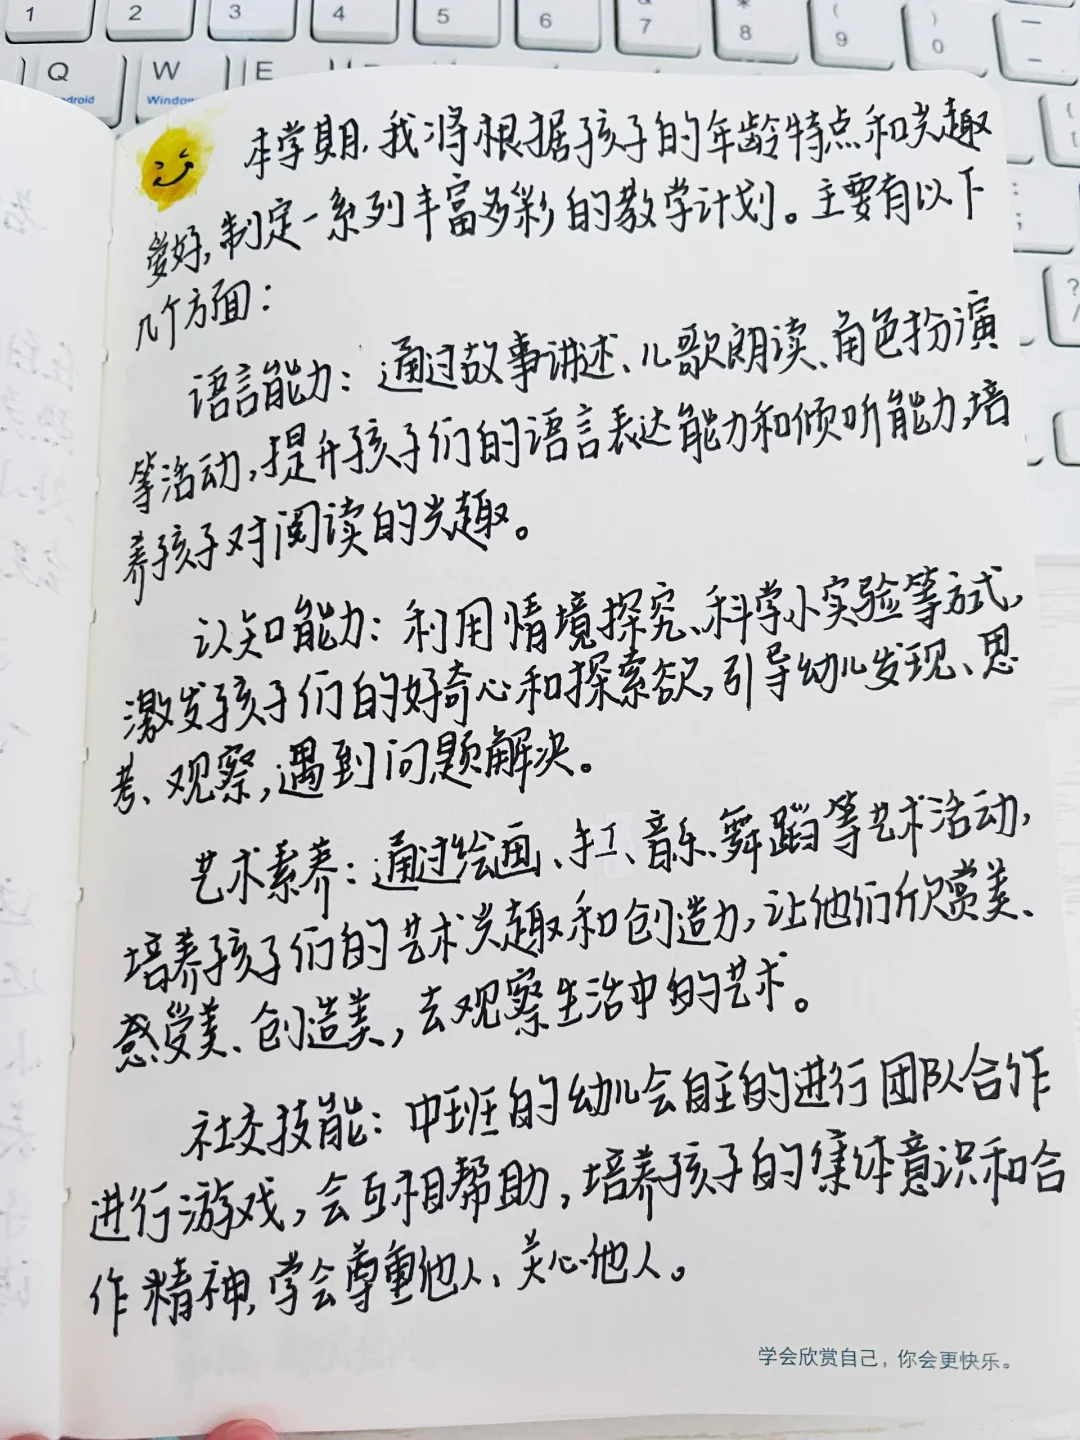 1 2 3 4 5 6 & 7 * 8 ( 9 ) 0
Q W E
Android Windows
本学期,我将根据孩子的年龄特点和兴趣
爱好,制定一系列丰富多彩的教学计划。主要有以下
几个方面:
语言能力:通过故事讲述、儿歌朗读、角色扮演
等活动,提升孩子们的语言表达能力和倾听能力,培
养孩子对阅读的兴趣。
认知能力:利用情境探究、科学小实验等方式,
激发孩子们的好奇心和探索欲,引导幼儿发现、思
考、观察,遇到问题解决。
艺术素养:通过绘画、手工、音乐、舞蹈等艺术活动,
培养孩子们的艺术兴趣和创造力,让他们欣赏美、
感受美、创造美,去观察生活中的艺术。
社交技能:中班的幼儿会自主的进行团队合作
进行游戏,会互相帮助,培养孩子的集体意识和合
作精神,学会尊重他人、关心他人。
学会欣赏自己,你会更快乐。